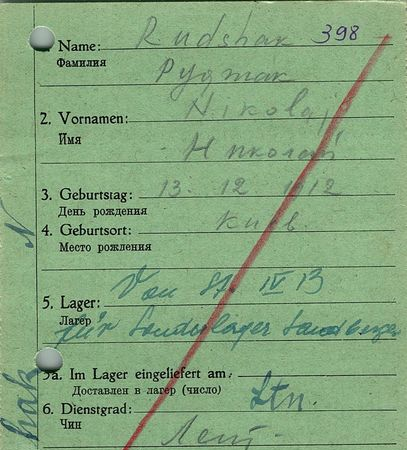 Name: Rudshak 398
Фамилия Руджак
2. Vornamen: Nikolaj
Имя Николай
3. Geburtstag: 13. 12. 1912
День рождения
4. Geburtsort: Киев.
Место рождения
Von St. IV B
5. Lager:
Лагер für Sonderlager
5a. Im Lager eingeliefert am:
Доставлен в лагер (число)
6. Dienstgrad: Ltn.
Чин Лейт.